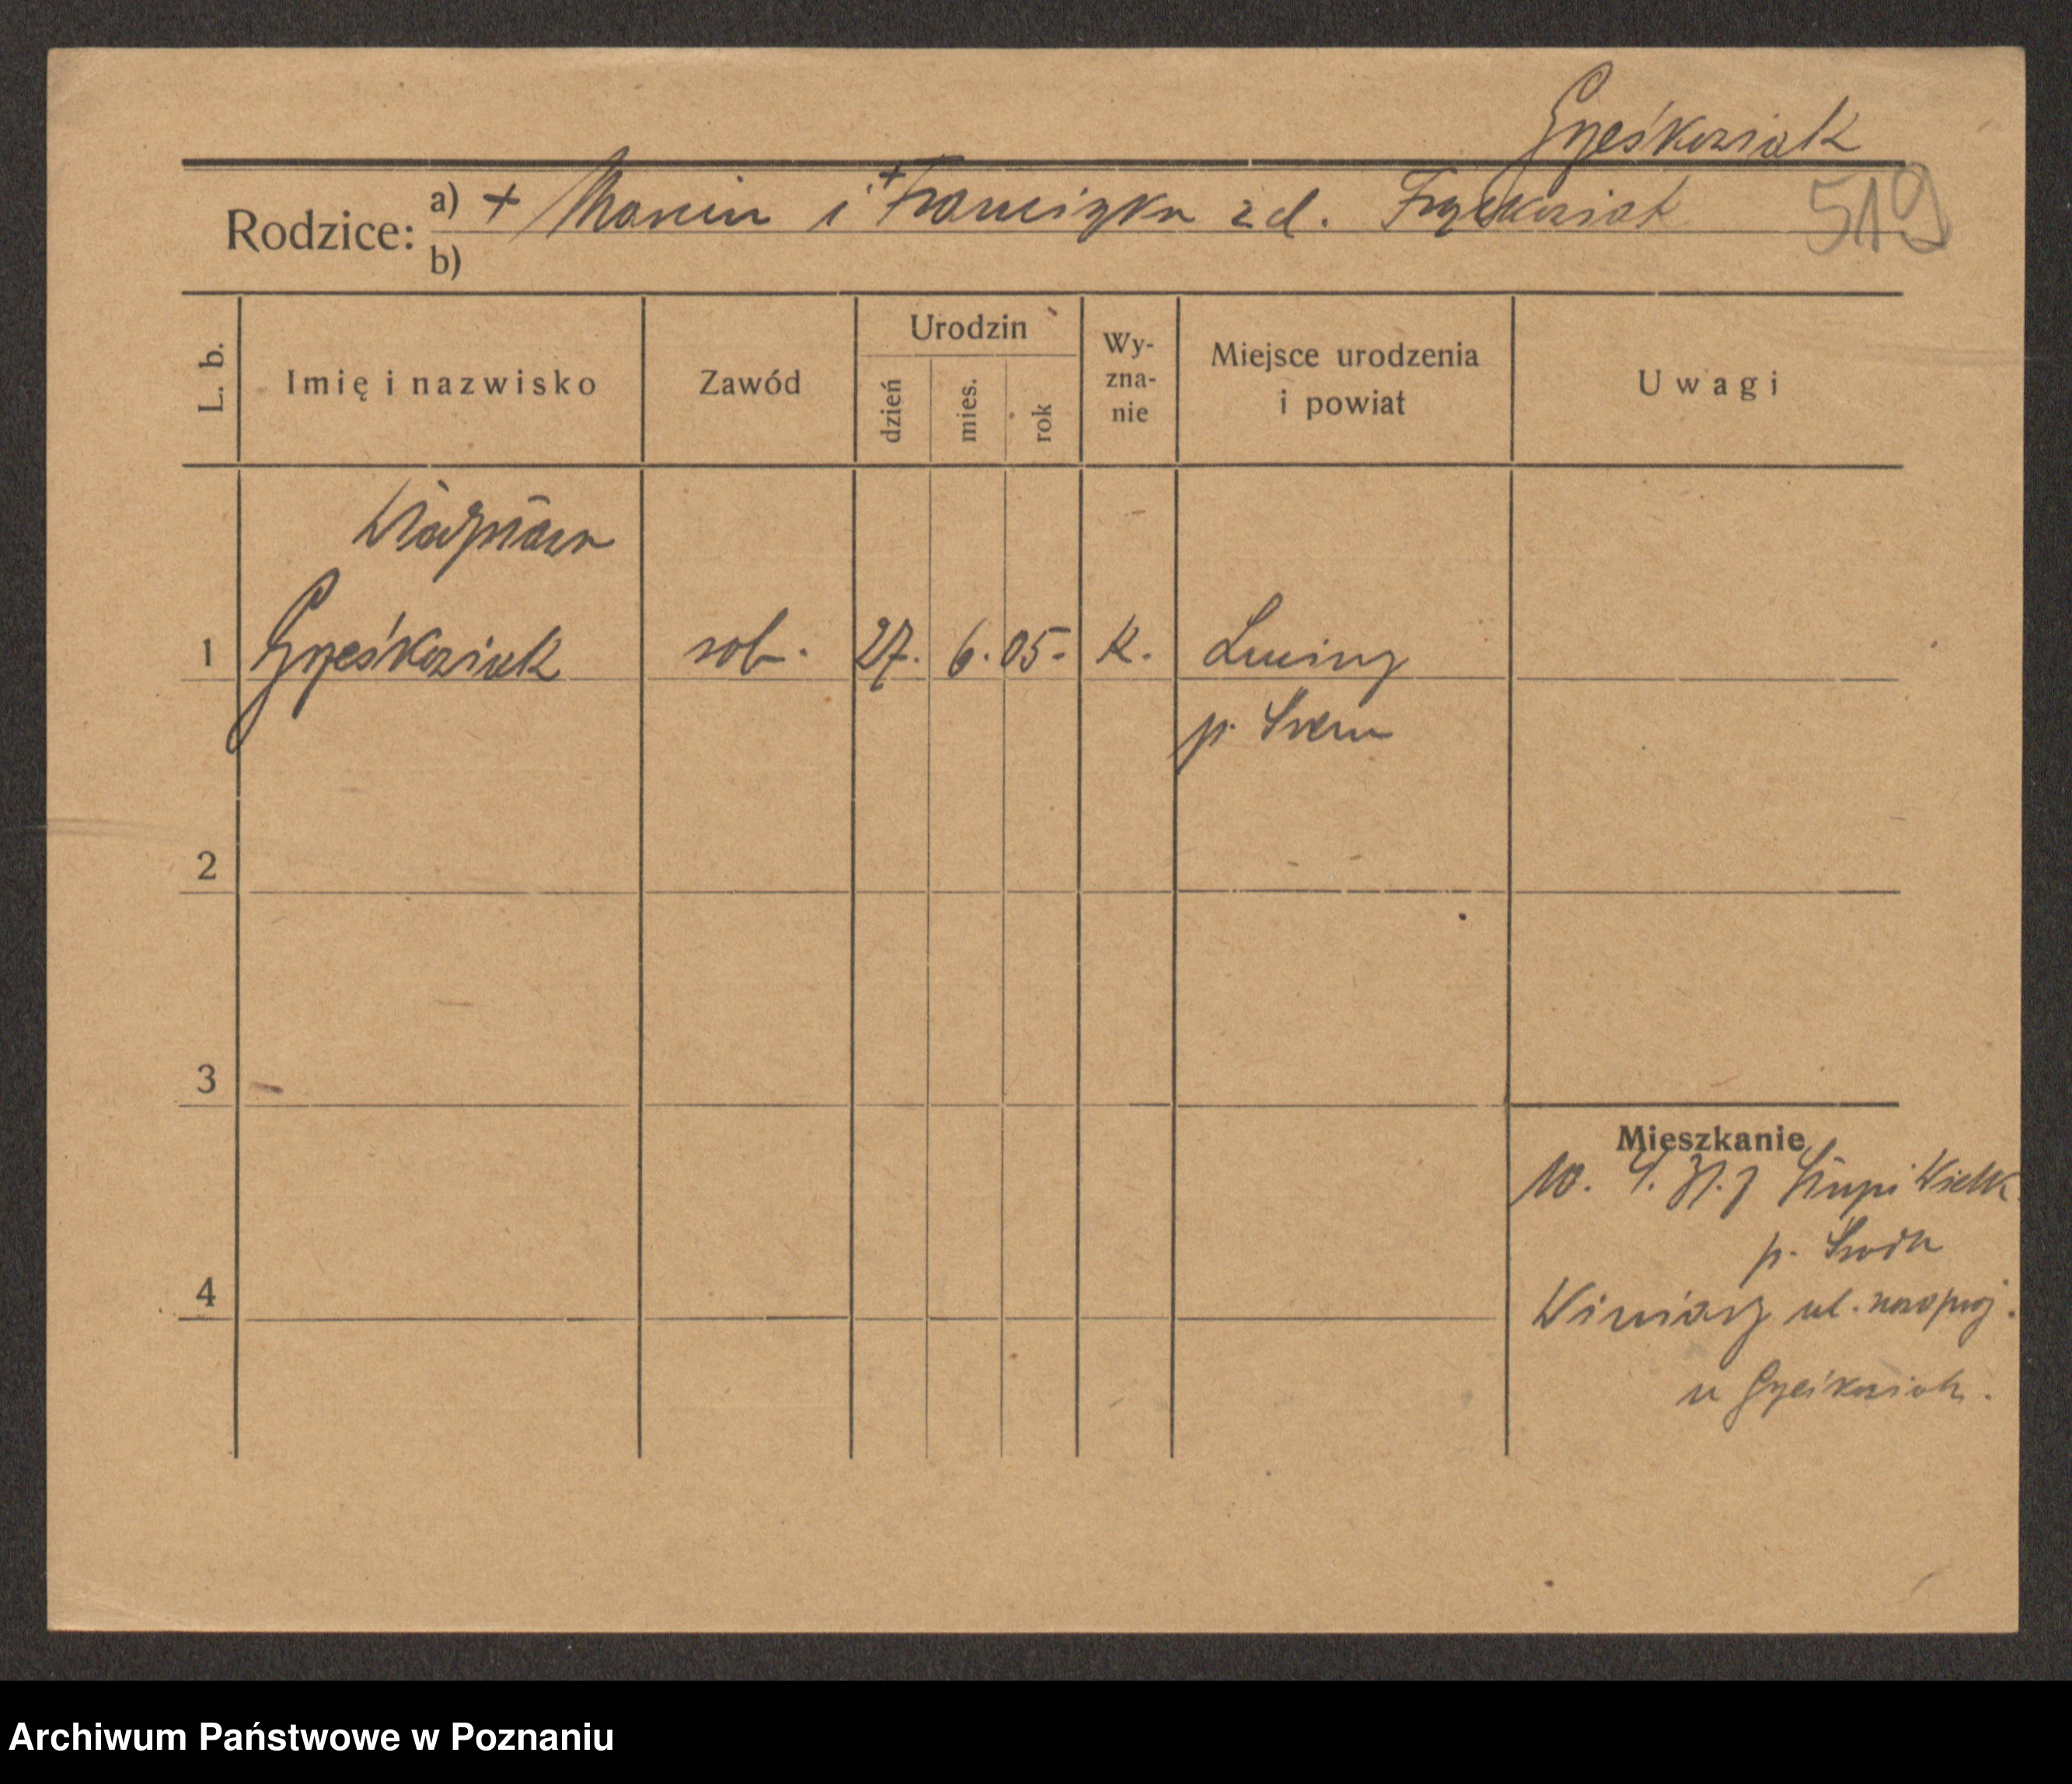 Grześkowiak
519
Rodzice: a) + Marcin i + Franciszka z d. Frąckowiak
b)
L. b.
Imię i nazwisko
Zawód
Urodzin
dzień
mies.
rok
Wy-
zna-
nie
Miejsce urodzenia
i powiat
Uwagi
1 Grześkowiak rob. 27. 6. 05. K. Luciny
p. Śrem
2
3
4
Mieszkanie
p. Środa
Winiary ul.
u Grześkowiak.
Archiwum Państwowe w Poznaniu